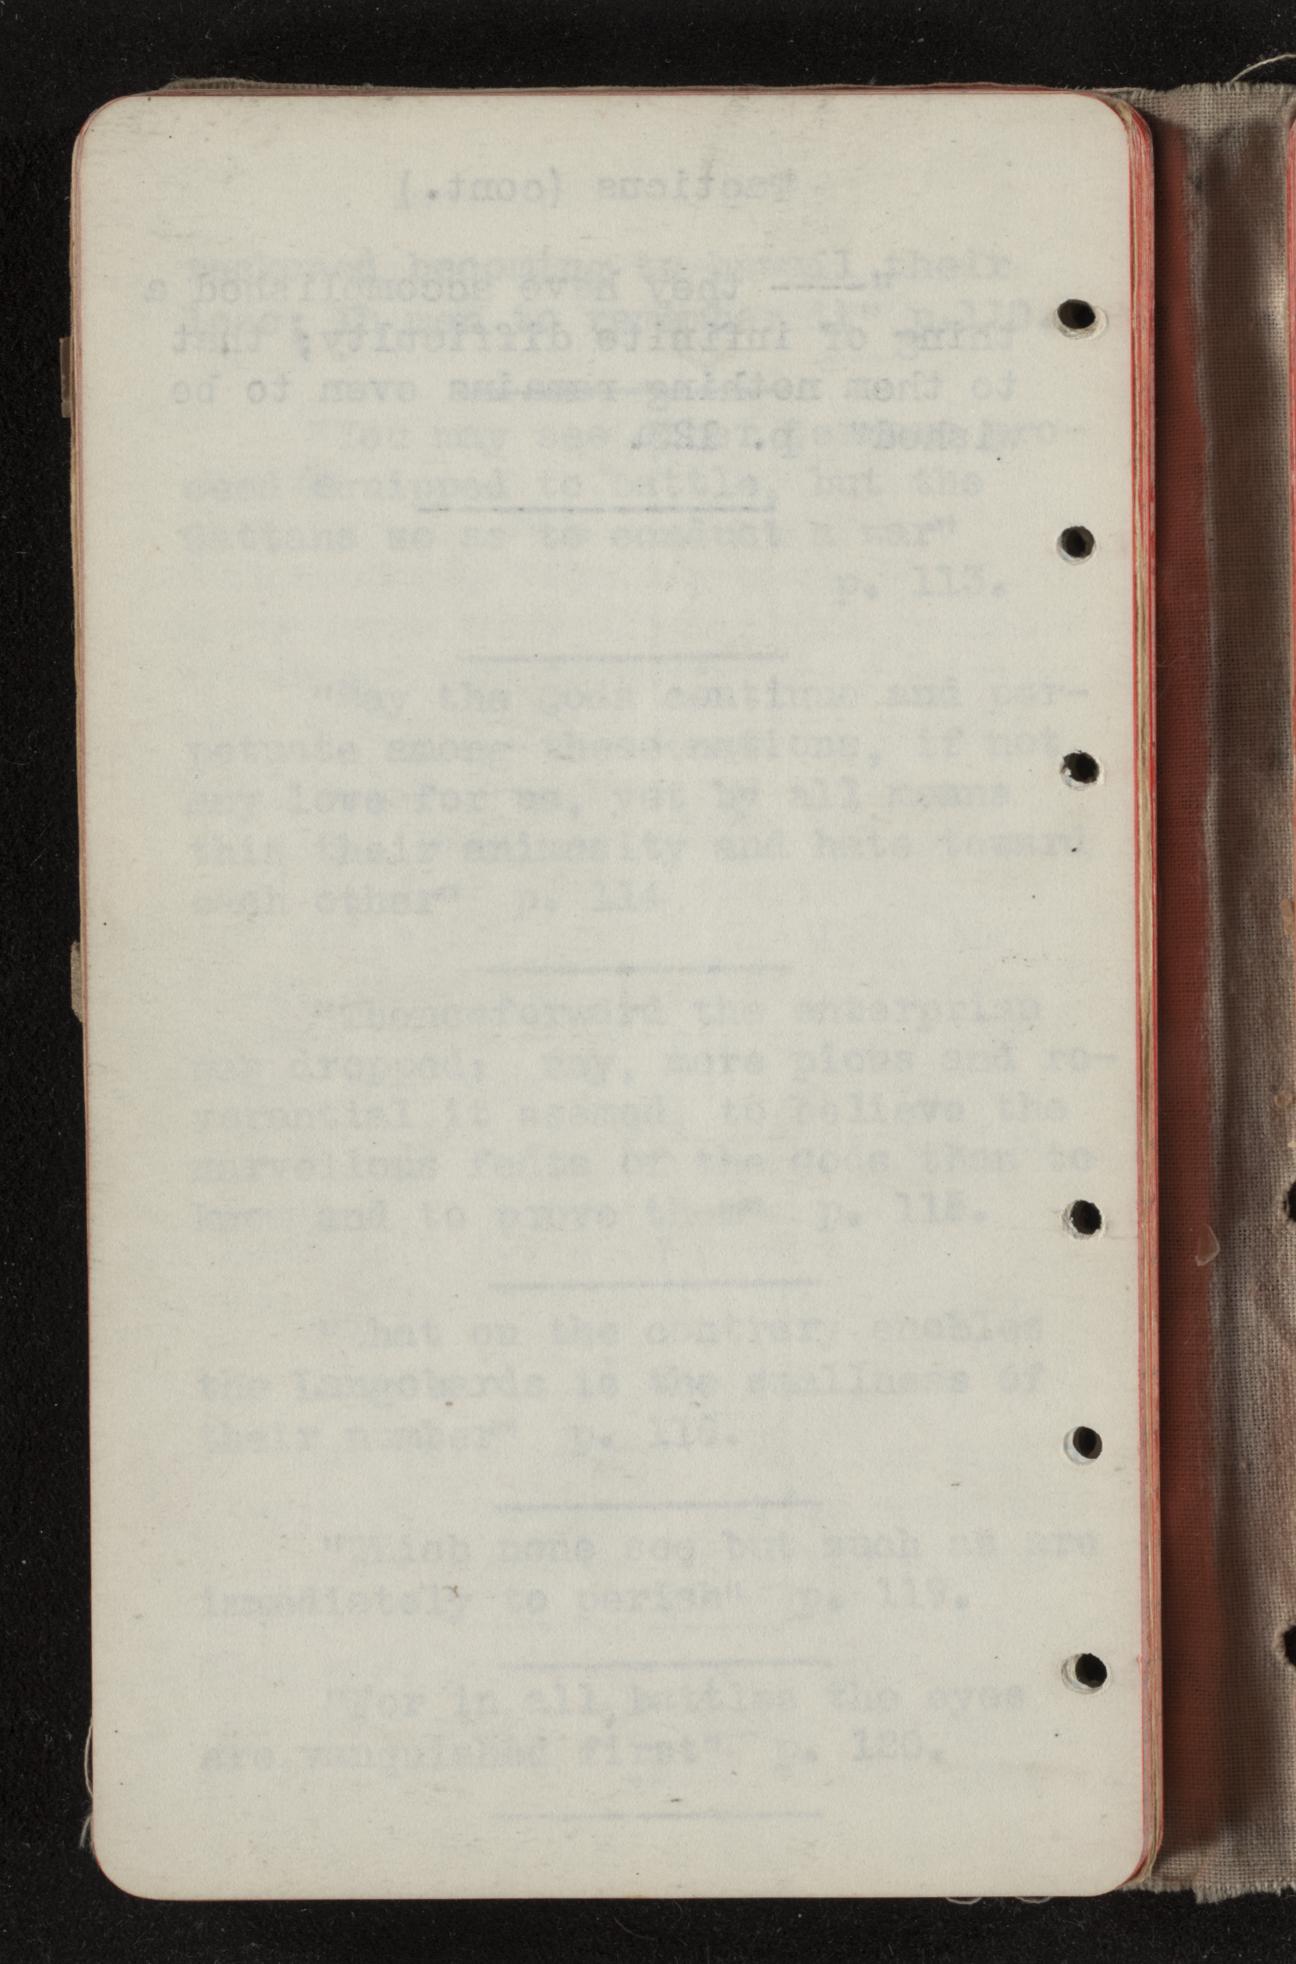 Tacticus (cont.)
"---- they have accomplished a
thing of infinite difficulty; that
to them nothing remains even to be
wished" p. 123.
becoming to their
"You may see other
ceed equipped to battle, but the
Battans so as to conduct a war"
p. 113.
"May the gods continue and per-
petuate among these nations, if not
any love for us, yet by all means
this their animosity and hate toward
each other" p. 114
"Thenceforward the enterprise
was dropped; nay, more pious and re-
verential it seemed to believe the
marvellous feats of the gods than to
know and to prove them" p. 115.
"What on the contrary enobles
the Langobards is the smallness of
their number" p. 116.
"Which none see but such as are
immediately to perish" p. 119.
"For in all battles the eyes
are vanquished first" p. 120.